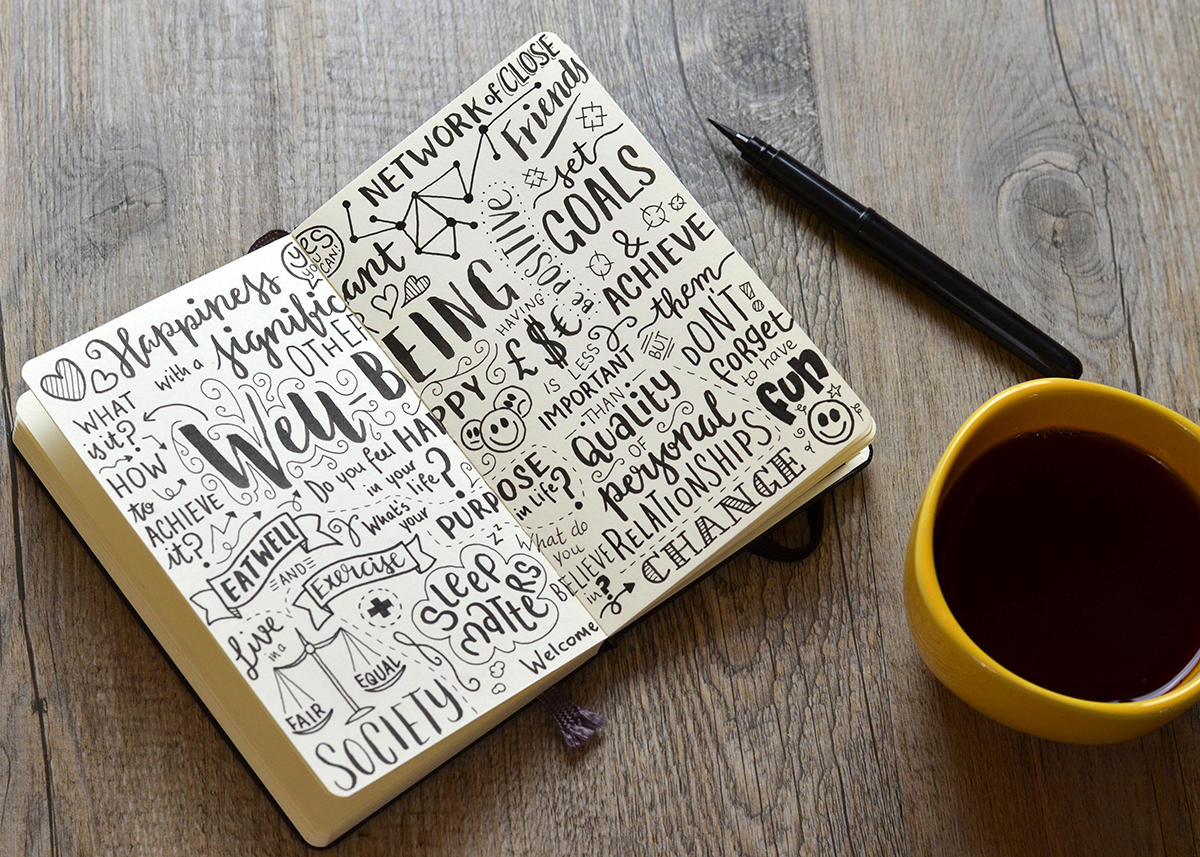 Happiness
with a
significant
OTHER
yes
YOU
CAN!
WHAT
is it?
HOW
to
ACHIEVE
it?
Well-BEING
Do you feel HAPPY
in your
life?
What's
your PURPOSE
in life?
EAT WELL
AND
Exercise
SLEEP
matters
Live
in a
FAIR
EQUAL
SOCIETY
Welcome
CHANGE
What do
you
BELIEVE
in?
NETWORK of CLOSE
Friends
set
GOALS
&
ACHIEVE
them
BE POSITIVE
HAVING
£ $ €
IS LESS
IMPORTANT
THAN
Quality
OF
personal
RELATIONSHIPS
BUT
DON'T
forget
to have
fun